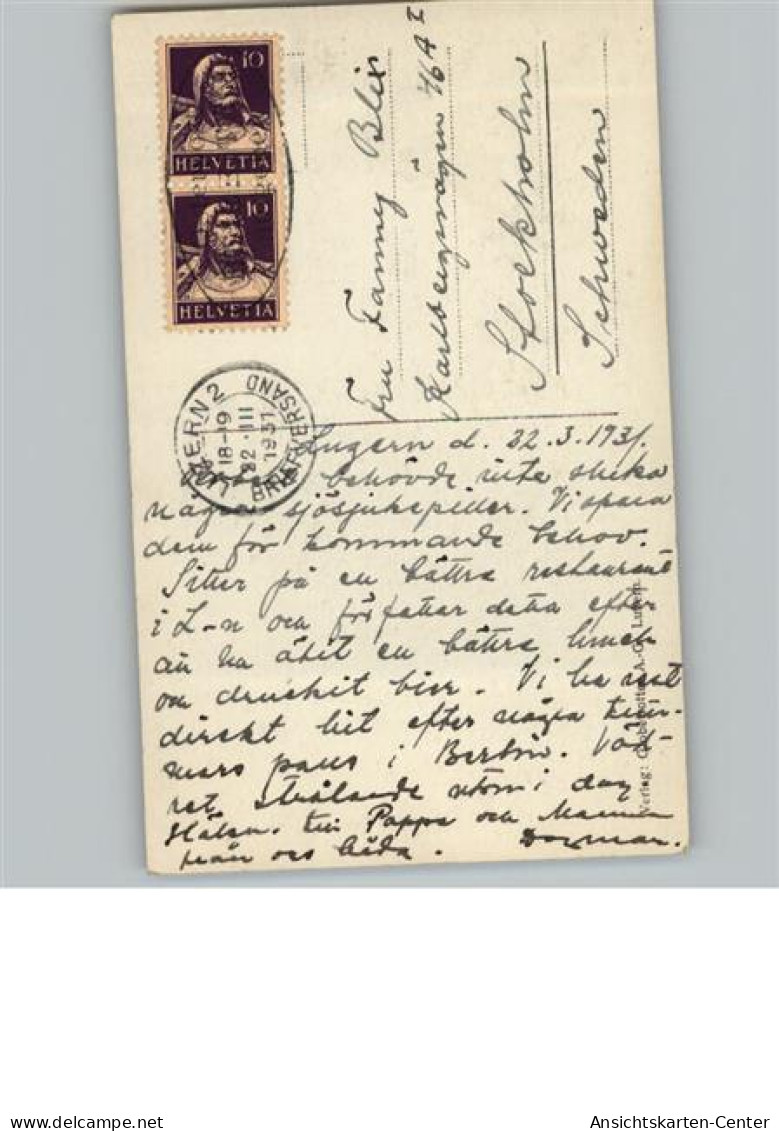 10
HELVETIA
10
HELVETIA
LUZERN 2
18-19
22.III
1931
BRIEFVERSAND
Fru Fanney Blix
Karlbergsvägen 46 A I
Stockholm
Schweden
Luzern d. 22.3.1931.
behövde inte skicka
några sjösjukepiller. Vi spara
dem för kommande behov.
Sitter på en bättre restaurant
i L-n och författar detta efter
att ha ätit en bättre lunch
och druckit bier. Vi ha rest
direkt hit efter några tim-
mars paus i Berlin. Väd-
ret strålande utom i dag
Hälsn. till Pappa och Mamma
från oss båda. Dagmar.
Verlag: Globetrotter A.-G., Luzern.
Ansichtskarten-Center